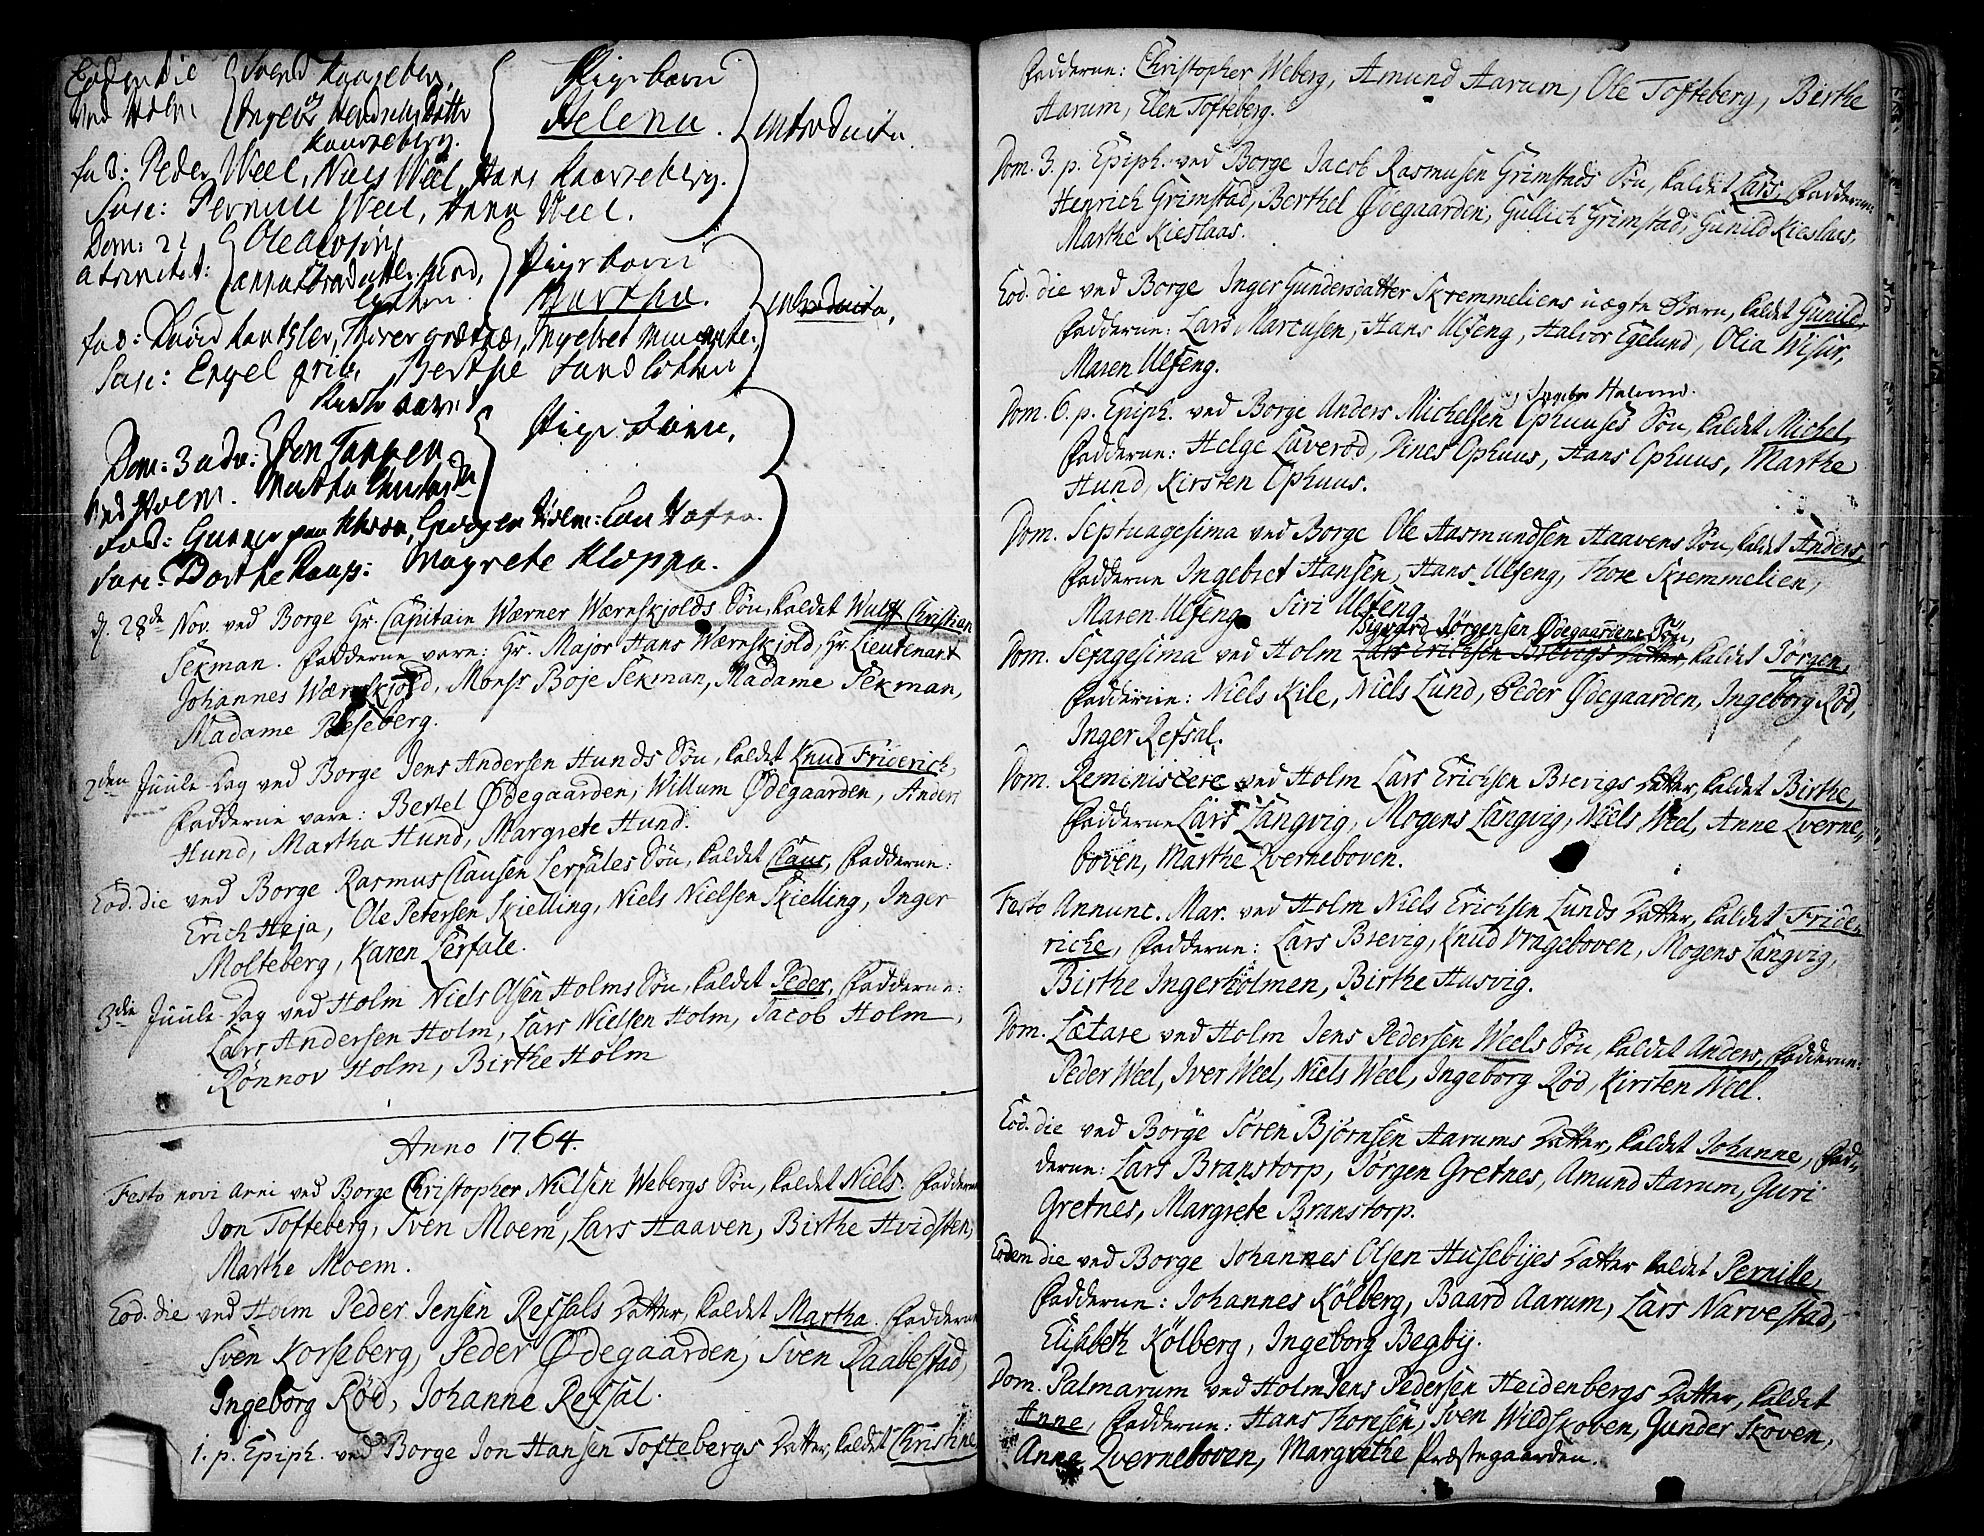 Eodem die { Svend Kaarseberg, { Pigebarn
ved Holm { Ingebor Hendrichsdatter { Helena. } introducta.
Kaarseberg.
fad: Peder Weel, Niels Weel, Hans Kaarseberg.
Sure: Pernille Weel, Anna Weel.
Dom: 21 { Ole { Pigebarn
a trinitat: { { Martha. } introducta,
fad:
Sure: Engel Berthe
Dom: 3 adv: { Jon Tangen { Pigebarn,
ved Holm. Martha
fad: Gunner
Sure: Dorthe Margrete Kloppa.
d. 28de Nov. ved Borge Hr. Capitain Wærner Wærnskjolds Søn, kaldet Wulff Christian
Sekman. Fadderne vare: Hr. Major Hans Wærnskjold, Hr. Lieutenant
Johannes Wærnskjold, Monsr Boje Sekman, Madame Sekman,
Madame
2den Juule-Dag ved Borge Jens Andersen Hunds Søn, kaldet Knud Friderich,
Fadderne vare: Bertel Ødegaarden, Willum Ødegaarden, Anders
Hund, Martha Hund, Margrete Hund.
Eod. die ved Borge Rasmus Clausen Lerfales Søn, kaldet Claus, Fadderne:
Erich Haja, Ole Petersen Skielling, Niels Nielsen Skielling, Inger
Molteberg, Karen Lerfale.
3die Juule-Dag ved Holm Niels Olsen Holms Søn, kaldet Peder, Fadderne:
Lars Andersen Holm, Lars Nielsen Holm, Jacob Holm,
Rønnov Holm, Birthe Holm
Anno 1764.
Festo novi Anni ved Borge Christopher Nielsen Webergs Søn, kaldet Niels. Fadderne
Jon Tofteberg, Sven Moem, Lars Haaven, Birthe Hvidsten,
Marthe Moem.
Eod. die ved Holm Peder Jensen Refsals Datter, kaldet Martha. Fadderne
Sven Korseberg, Peder Ødegaarden, Sven Raabestad,
Ingeborg Rød, Johanne Refsal.
1. p. Epiph. ved Borge Jon Hansen Toftebergs Datter, kaldet Christine
Fadderne: Christopher Weberg, Amund Aarum, Ole Tofteberg, Birthe
Aarum, Elen Tofteberg.
Dom. 3. p. Epiph. ved Borge Jacob Rasmusen Grimstads Søn, kaldet Lars, Fadderne:
Henrich Grimstad, Berthel Ødegaarden, Gullich Grimstad, Gunild Kieslaas,
Marthe Kieslaas.
Eod. die ved Borge Inger Gundersdatter Skremmeliens uægte Barn, kaldet Gunild,
Fadderne: Lars Marcusen, Hans Ulfeng, Halvor Egelund, Olia Wisur,
Maren Ulfeng.
Dom. 6. p. Epiph. ved Borge Anders Michelsen Ophuuses Søn, kaldet Michel,
Fadderne: Helge Lauerød, Dines Ophuus, Hans Ophuus, Marthe
Hund, Kirsten Ophuus.
Dom. Septuagesima ved Borge Ole Aasmundsen Haavens Søn, kaldet Anders,
Fadderne Ingebret Hansen, Hans Ulfeng, Thore Skremmelien,
Maren Ulfeng Siri Ulfeng.
Sigvard Jørgensen Ødegaardens Søn,
Dom. Sexagesima ved Holm Lars Erichsen Brevigs Datter, kaldet Jørgen,
Fadderne: Niels Kile, Niels Lund, Peder Ødegaarden, Ingeborg Rød,
Inger Refsal.
Dom. Reminiscere ved Holm Lars Erichsen Brevigs Datter, kaldet Birthe,
Fadderne Lars Langvig, Mogens Langvig, Niels Weel, Anne Qverne-
boven, Marthe Qverneboven.
Festo Annunc. Mar. ved Holm Niels Erichsen Lunds Datter, kaldet Fride-
riche, Fadderne: Lars Brevig, Knud Vrageboven, Mogens Langvig,
Birthe Ingerholmen, Birthe Husvig.
Dom. Lætare ved Holm Jens Pedersen Weels Søn, kaldet Anders, Fadderne:
Peder Weel, Iver Weel, Niels Weel, Ingeborg Rød, Kirsten Weel.
Eod. die ved Borge Søren Bjørnsen Aarums Datter, kaldet Johanne, Fad-
derne: Lars Branstorp, Jørgen Gretnes, Amund Aarum, Guri
Gretnes, Margrete Branstorp.
Eodem die ved Borge Johannes Olsen Husebyes Datter kaldet Pernille,
Fadderne: Johannes Kølberg, Baard Aarum, Lars Narvestad,
Elisabeth Kølberg, Ingeborg Begby.
Dom. Palmarum ved Holm Jens Pedersen Heidenbergs Datter, kaldet
Anne, Fadderne: Hans Thoresen, Sven Wildskoven, Gunder Skoven,
Anne Qverneboven, Margrethe Præstegaarden.